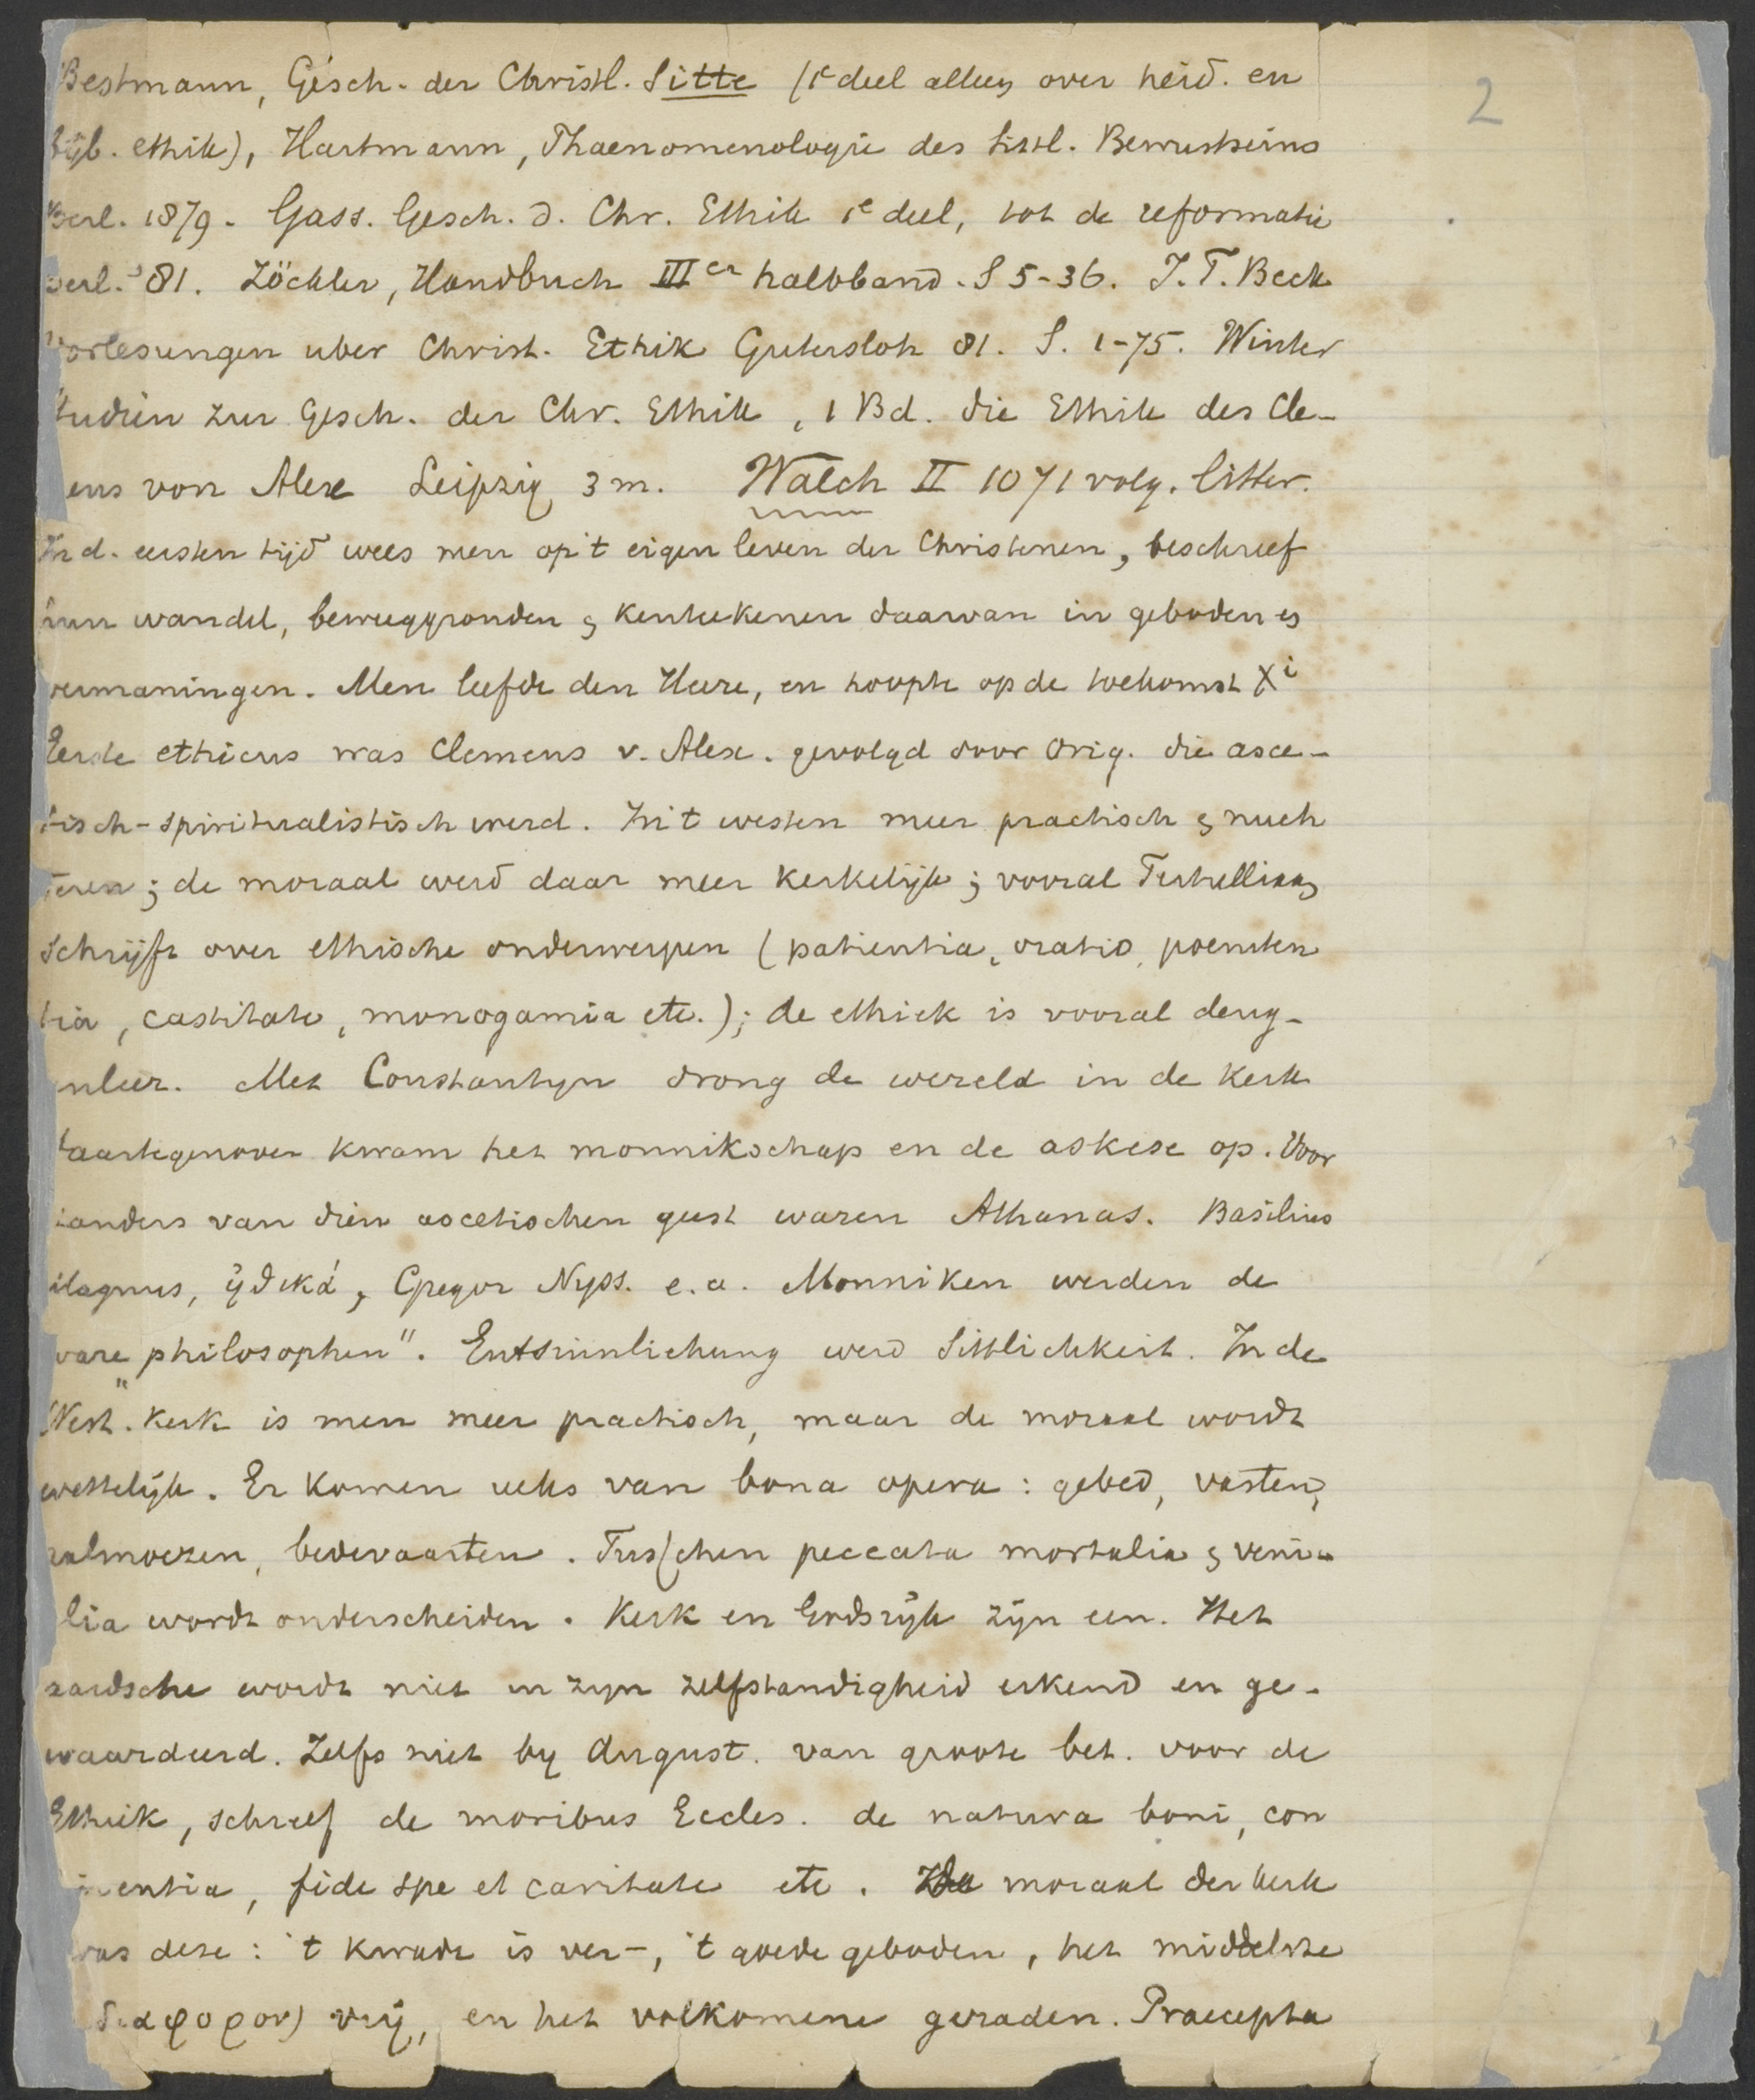 2
Bestmann, Gesch. der Christl. Sitte (1e deel alleen over heid. en
bijb. ethik), Hartmann, Phaenomenologie des sittl. Bewustseins
Berl. 1879. Gass. Gesch. d. Chr. Ethik 1e deel, tot de reformatie
Berl. '81. Zöckler, Handbuch IIIer halbband. S 5-36. J. T. Beck
Vorlesungen uber Christ. Ethik Gutersloh 81. S. 1-75. Winter
Studien zur Gesch. der Chr. Ethik, 1 Bd. die Ethik des Cle-
ens von Alex Leipzig 3 m. Walch II 1071 volg. litter.
In d. eersten tijd wees men op 't eigen leven der Christenen, beschreef
hun wandel, beweeggronden & kenteekenen daarvan in geboden &
vermaningen. Men leefde den Heere, en hoopte op de toekomst Xi
Eerste ethicus was Clemens v. Alex. gevolgd door Orig. die asce-
tisch-spiritualistisch werd. In 't westen meer practisch & nuch
teren; de moraal werd daar meer kerkelijk; vooral Tertulliaan
schrijft over ethische onderwerpen (patientia, oratio, poeniten
tia, castitate, monogamia etc.); de ethiek is vooral deug-
nleer. Met Constantyn drong de wereld in de Kerk
daartegenover kwam het monnikschap en de askese op. Voor
tanders van dien ascetischen geest waren Athanas. Basilius
Magnus, ἠθικά, Gregor Nyss. e.a. Monniken werden de
"ware philosophen". Entsinnlichung werd Sittlichkeit. In de
West. Kerk is men meer practisch, maar de moraal wordt
wettelijk. Er komen reeks van bona opera: gebed, vasten,
aalmoezen, bedevaarten. Tusschen peccata mortalia & veni-
lia wordt onderscheiden. Kerk en Godsrijk zijn een. Het
aardsche wordt niet in zyn zelfstandigheid erkend en ge-
waardeerd. Zelfs niet by August. van groote bet. voor de
Ethiek, schreef de moribus Eccles. de natura boni, con
inentia, fide spe et caritate etc. De moraal der kerk
was deze: 't kwade is ver-, 't goede geboden, het middelste
διαφορον) vrij, en het volkomene geraden. Praecepta